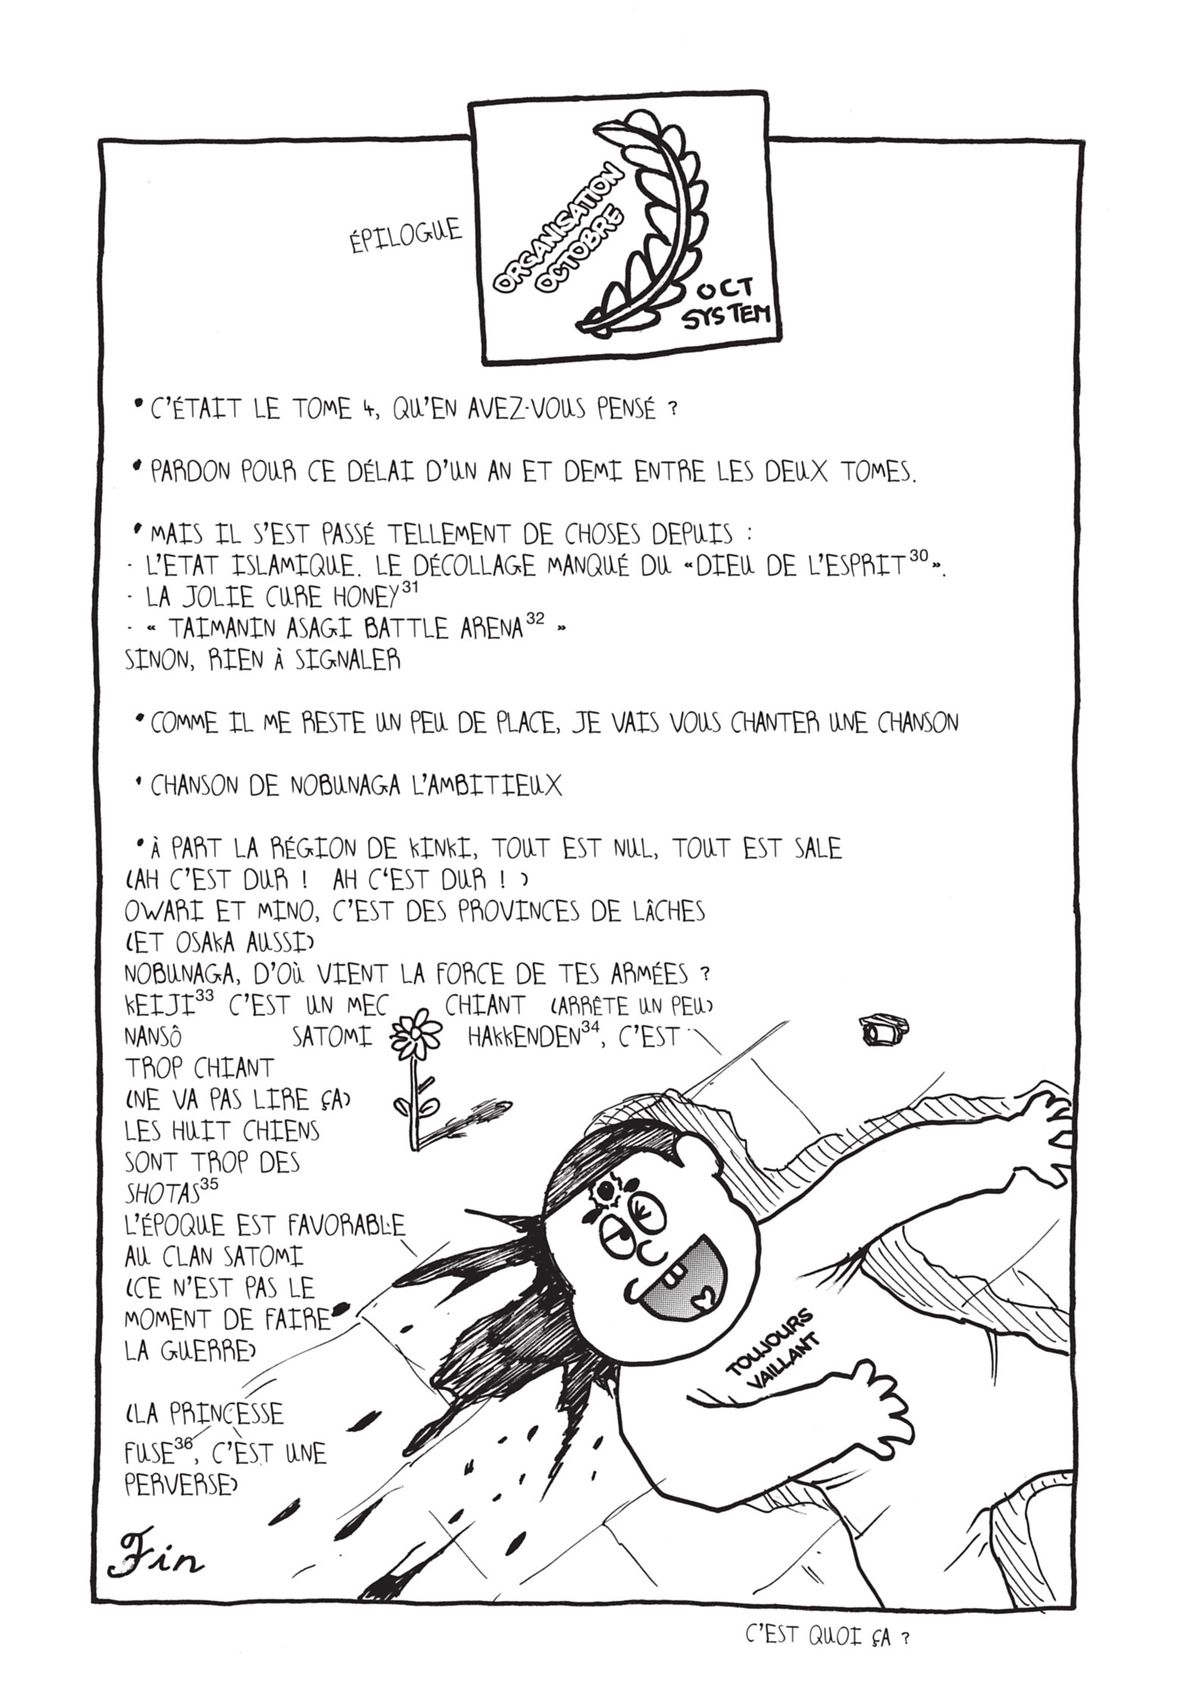 ÉPILOGUE
ORGANISATION
OCTOBRE
OCT
SYSTEM
• C'ÉTAIT LE TOME 4, QU'EN AVEZ-VOUS PENSÉ ?
• PARDON POUR CE DÉLAI D'UN AN ET DEMI ENTRE LES DEUX TOMES.
• MAIS IL S'EST PASSÉ TELLEMENT DE CHOSES DEPUIS :
- L'ETAT ISLAMIQUE. LE DÉCOLLAGE MANQUÉ DU «DIEU DE L'ESPRIT30».
- LA JOLIE CURE HONEY31
- « TAIMANIN ASAGI BATTLE ARENA32 »
SINON, RIEN À SIGNALER
• COMME IL ME RESTE UN PEU DE PLACE, JE VAIS VOUS CHANTER UNE CHANSON
• CHANSON DE NOBUNAGA L'AMBITIEUX
• À PART LA RÉGION DE KINKI, TOUT EST NUL, TOUT EST SALE
(AH C'EST DUR ! AH C'EST DUR ! )
OWARI ET MINO, C'EST DES PROVINCES DE LÂCHES
(ET OSAKA AUSSI)
NOBUNAGA, D'OÙ VIENT LA FORCE DE TES ARMÉES ?
KEIJI33 C'EST UN MEC CHIANT (ARRÊTE UN PEU)
NANSÔ SATOMI HAKKENDEN34, C'EST
TROP CHIANT
(NE VA PAS LIRE ÇA)
LES HUIT CHIENS
SONT TROP DES
SHOTAS35
L'ÉPOQUE EST FAVORABLE
AU CLAN SATOMI
(CE N'EST PAS LE
MOMENT DE FAIRE
LA GUERRE)
(LA PRINCESSE
FUSE36, C'EST UNE
PERVERSE)
TOUJOURS
VAILLANT
Fin
C'EST QUOI ÇA ?